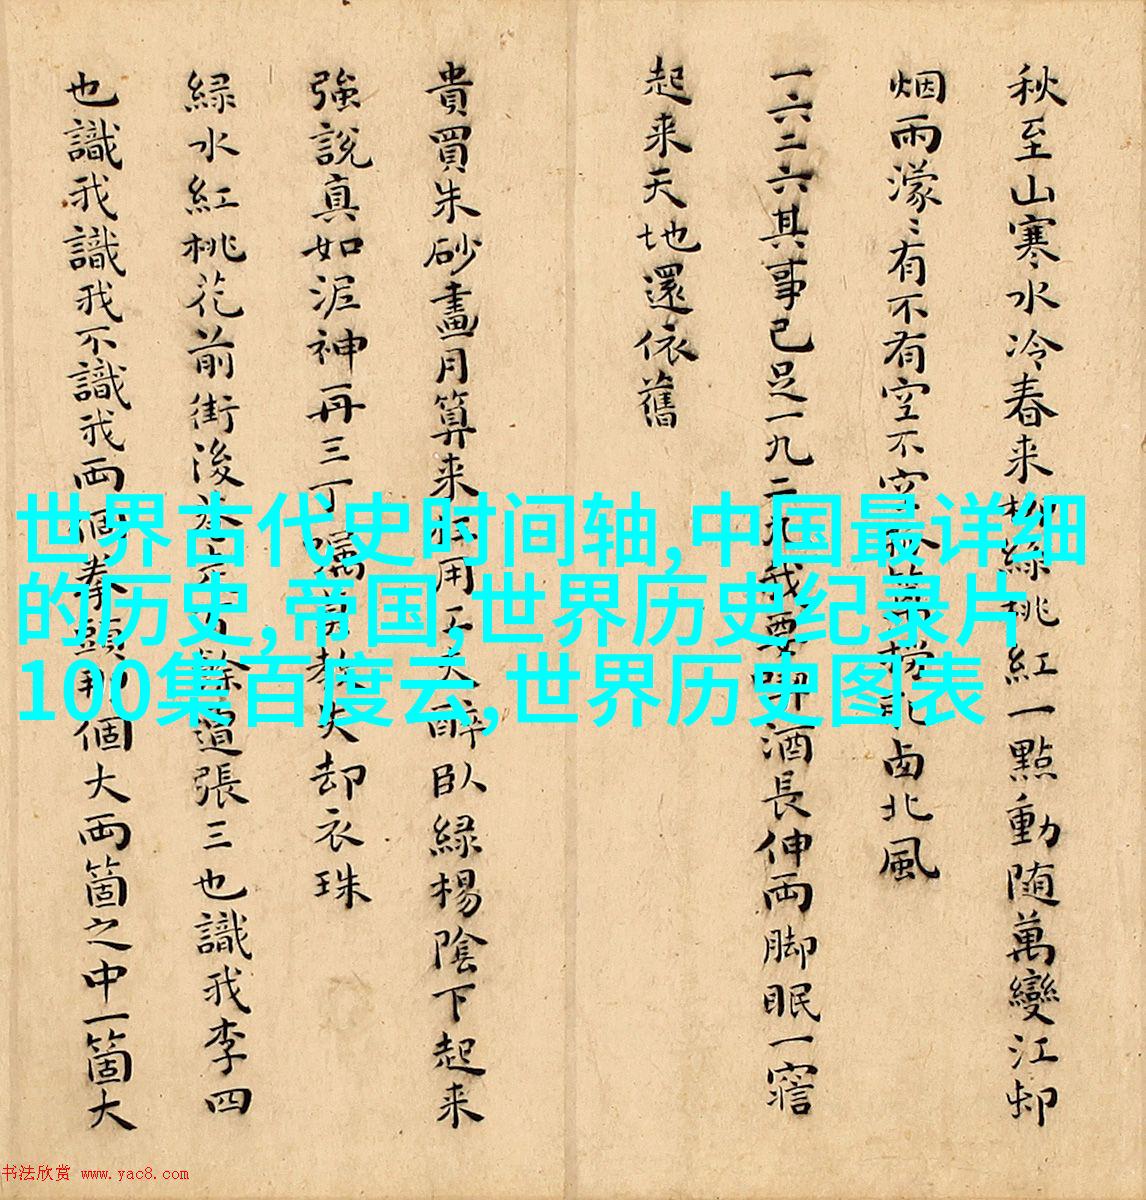 秋至山寒水冷春来柳絲桃紅一點動随萬變江邨
烟雨濛〻有不有空不空笊篱撈乳西北風
一六二六其事已足一九二九我要喫酒長伸両脚眠一寤
起来天地還依舊
貴買朱砂畫月算来用天醉臥緑楊陰下起来
強說真如泥神再三丁嘱莫教失却衣珠
緑水紅桃花前街後道張三也識我李四
也識我識我不識我両個拳頭個大両箇之中一箇大
世界古代史时间轴,中国最详细
的历史,帝国,世界历史纪录片
100集百度云,世界历史图表
书法欣赏 www.yac8.com